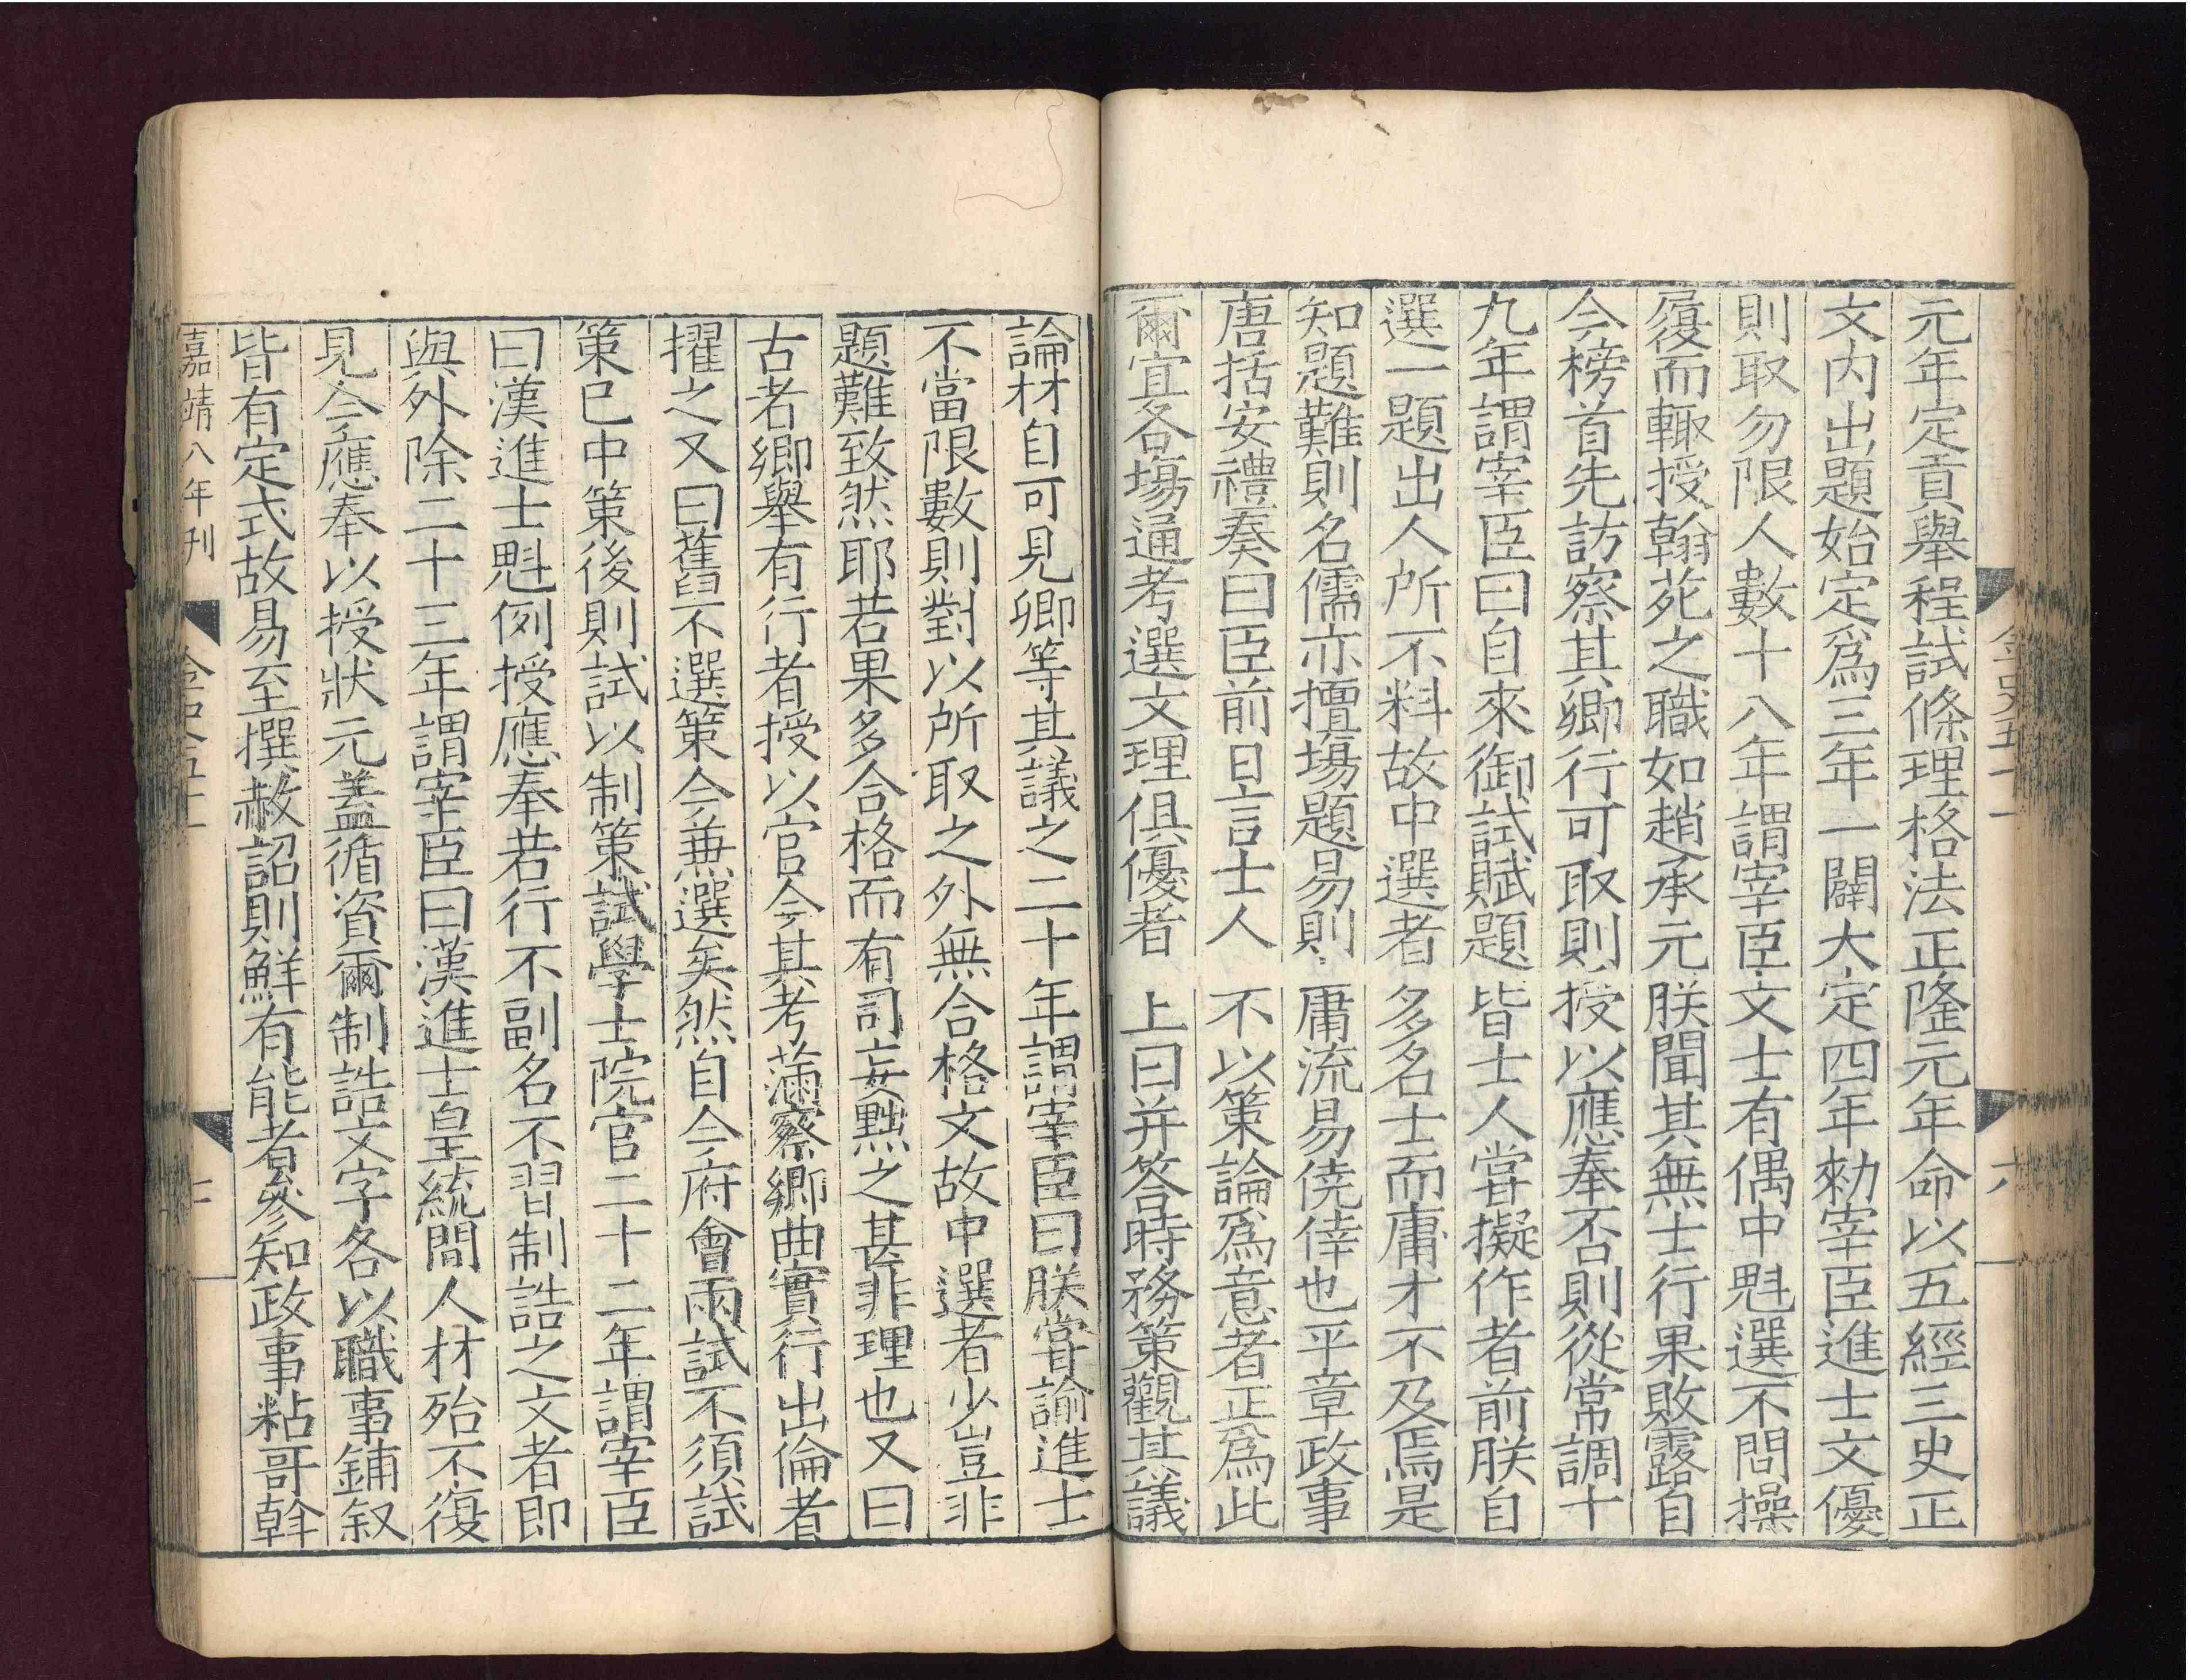 元年定貢舉程試條理格法正隆元年命以五經三史正
文内出題始定爲三年一闢大定四年勑宰臣進士文優
則取勿限人數十八年謂宰臣文士有偶中魁選不問操
履而輒授翰苑之職如趙承元朕聞其無士行果敗露自
今榜首先訪察其鄉行可取則授以應奉否則從常調十
九年謂宰臣曰自來御試賦題皆士人嘗擬作者前朕自
選一題出人所不料故中選者多名士而庸才不及焉是
知題難則名儒亦擅場題易則庸流易僥倖也平章政事
唐括安禮奏曰臣前日言士人不以策論爲意者正爲此
爾宜各場通考選文理俱優者上曰并答時務策觀其議
論材自可見卿等其議之二十年謂宰臣曰朕嘗諭進士
不當限數則對以所取之外無合格文故中選者少豈非
題難致然耶若果多合格而有司妄黜之甚非理也又曰
古者鄉舉有行者授以官今其考滿察鄉曲實行出倫者
擢之又曰舊不選策今兼選矣然自今府會兩試不須試
策已中策後則試以制策試學士院官二十二年謂宰臣
曰漢進士魁例授應奉若行不副名不習制誥之文者即
與外除二十三年謂宰臣曰漢進士皇統間人材殆不復
見今應奉以授狀元蓋循資爾制誥文字各以職事鋪叙
皆有定式故易至撰赦詔則鮮有能者參知政事粘哥斡
嘉靖八年刊
金史五十一
七
金史五十一
六